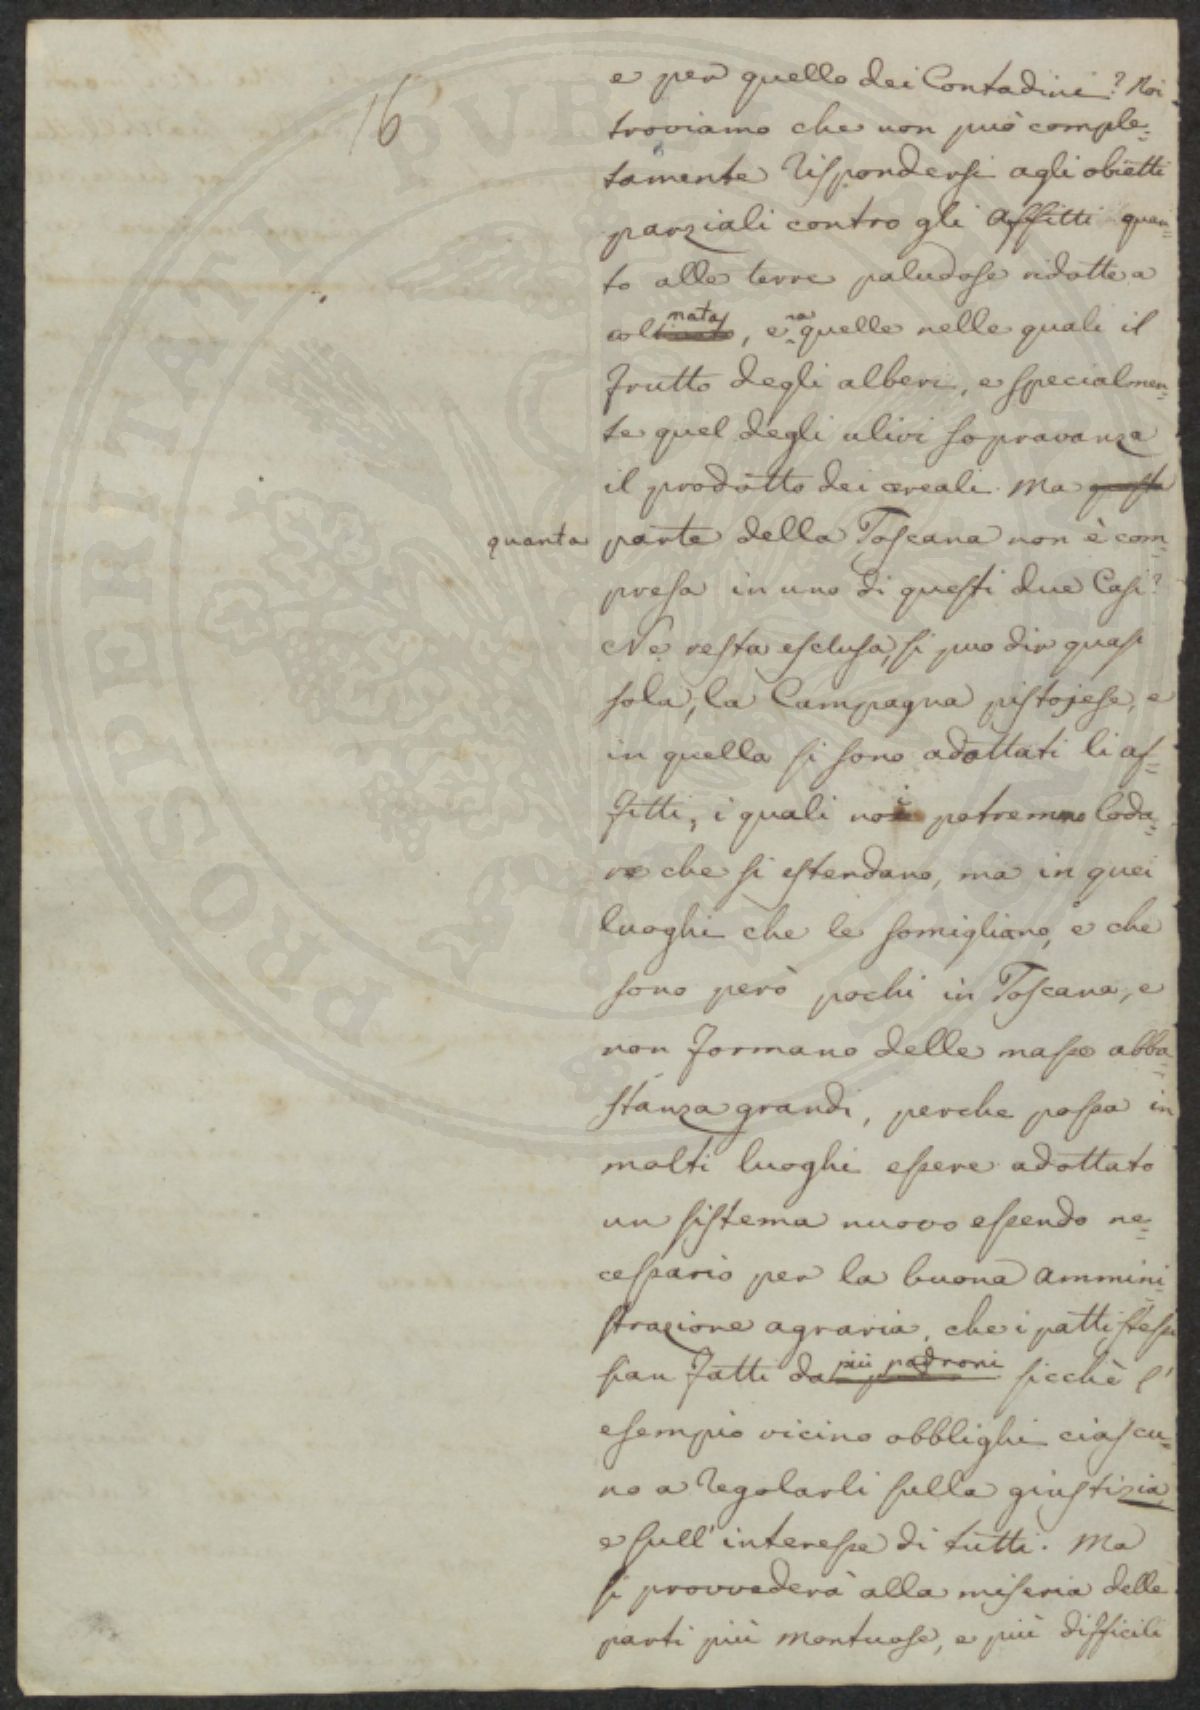 16
e per quello dei Contadini? Noi
troviamo che non può comple=
tamente rispondersi agli obietti
parziali contro gli affitti quan=
to alle terre paludose ridotte a
colmata, e a quelle nelle quali il
frutto degli alberi, e specialmen=
te quel degli ulivi sopravanza
il prodotto dei cereali. Ma
quanta parte della Toscana non è com=
presa in uno di questi due Casi?
Ne resta esclusa, si può dir quasi
sola, la Campagna pistojese, e
in quella si sono adottati li af=
fitti, i quali noi potremmo loda=
re che si estendano, ma in quei
luoghi che le somigliano, e che
sono però pochi in Toscana, e
non formano delle masse abba=
stanza grandi, perche possa in
molti luoghi essere adottato
un sistema nuovo essendo ne=
cessario per la buona ammini=
strazione agraria, che i patti stessi
sian fatti da più padroni sicchè l'
esempio vicino obblighi ciascu=
no a regolarli sulla giustizia,
e sull'interesse di tutti. Ma
si provvederà alla miseria delle
parti più montuose, e più difficili
PROSPERITATI PUBLICAE